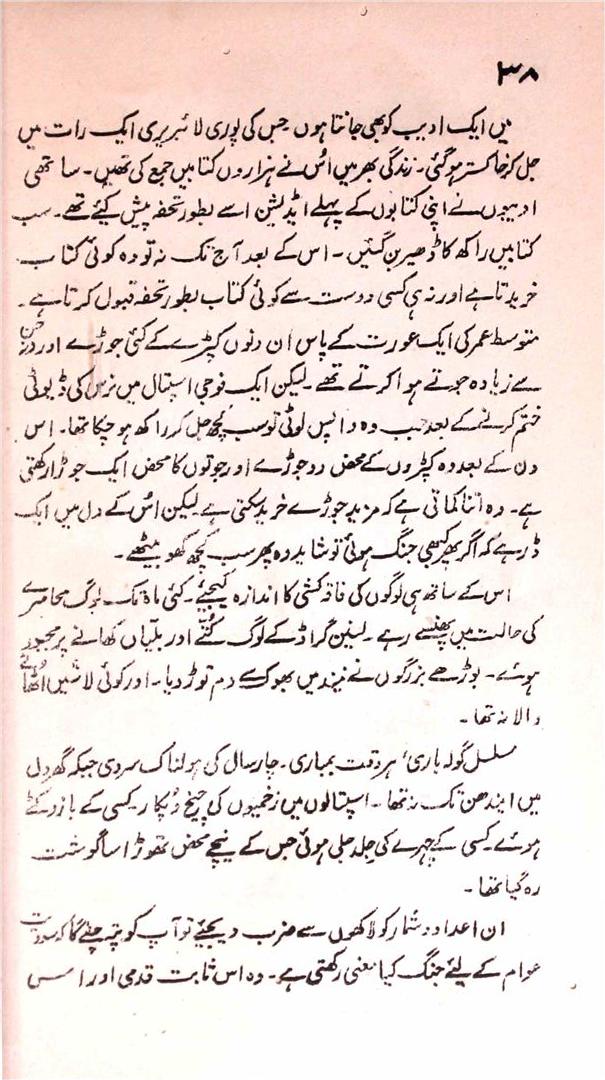 ۳۸
میں ایک ادیب کو بھی جانتا ہوں جس کی پوری لائبریری ایک رات میں
جل کر خاکستر ہو گئی۔ زندگی بھر میں اُس نے ہزاروں کتابیں جمع کی تھیں۔ ساتھی
ادیبوں نے اپنی کتابوں کے پہلے ایڈیشن اسے بطور تحفہ پیش کیئے تھے۔ سب
کتابیں راکھ کا ڈھیر بن گئیں۔ اس کے بعد آج تک نہ تو وہ کوئی کتاب
خریدتا ہے اور نہ ہی کسی دوست سے کوئی کتاب بطور تحفہ قبول کرتا ہے۔
متوسط عمر کی ایک عورت کے پاس ان دنوں کپڑے کے کئی جوڑے اور درجن
سے زیادہ جوتے ہوا کرتے تھے۔ لیکن ایک فوجی اسپتال میں نرس کی ڈیوٹی
ختم کرنے کے بعد جب وہ واپس لوٹی تو سب کچھ جل کر راکھ ہو چکا تھا۔ اس
دن کے بعد وہ کپڑوں کے محض دو جوڑے اور جوتوں کا محض ایک جوڑا رکھتی
ہے۔ وہ اتنا کماتی ہے کہ مزید جوڑے خرید سکتی ہے لیکن اُس کے دل میں ایک
ڈر ہے کہ اگر پھر کبھی جنگ ہوئی تو شاید وہ پھر سب کچھ کھو بیٹھے۔
اس کے ساتھ ہی لوگوں کی فاقہ کشی کا اندازہ کیجیئے۔ کئی ماہ تک لوگ محاصرے
کی حالت میں پھنسے رہے۔ لینن گراڈ کے لوگ کُتّے اور بلیاں کھانے پر مجبور
ہوئے۔ بوڑھے بزرگوں نے نیند میں بھوک سے دم توڑ دیا۔ اور کوئی لاشیں اٹھانے
والا نہ تھا۔
مسلسل گولہ باری، ہر وقت بمباری۔ چار سال کی ہولناک سردی جبکہ گھروں
میں ایندھن تک نہ تھا۔ اسپتالوں میں زخمیوں کی چیخ و پکار کسی کے بازو کٹے
ہوئے کسی کے چہرے کی جلد جلی ہوئی جس کے نیچے محض تھوڑا سا گوشت
رہ گیا تھا۔
ان اعداد و شمار کو لاکھوں سے ضرب دیجیئے تو آپ کو پتہ چلے گا کہ سوویت
عوام کے لیئے جنگ کیا معنی رکھتی ہے۔ وہ اس ثابت قدمی اور اس